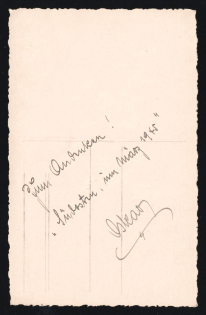 Zum Andenken!
"Südosten, im März 1945"
Oskar